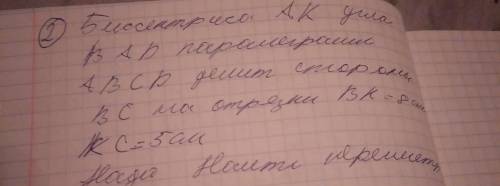 ② Биссектриса АК угла
BAD параллеграмм
ABCD делит стороны
ВС на отрезки ВК=8см
КС=5см
Надо Найти периметр